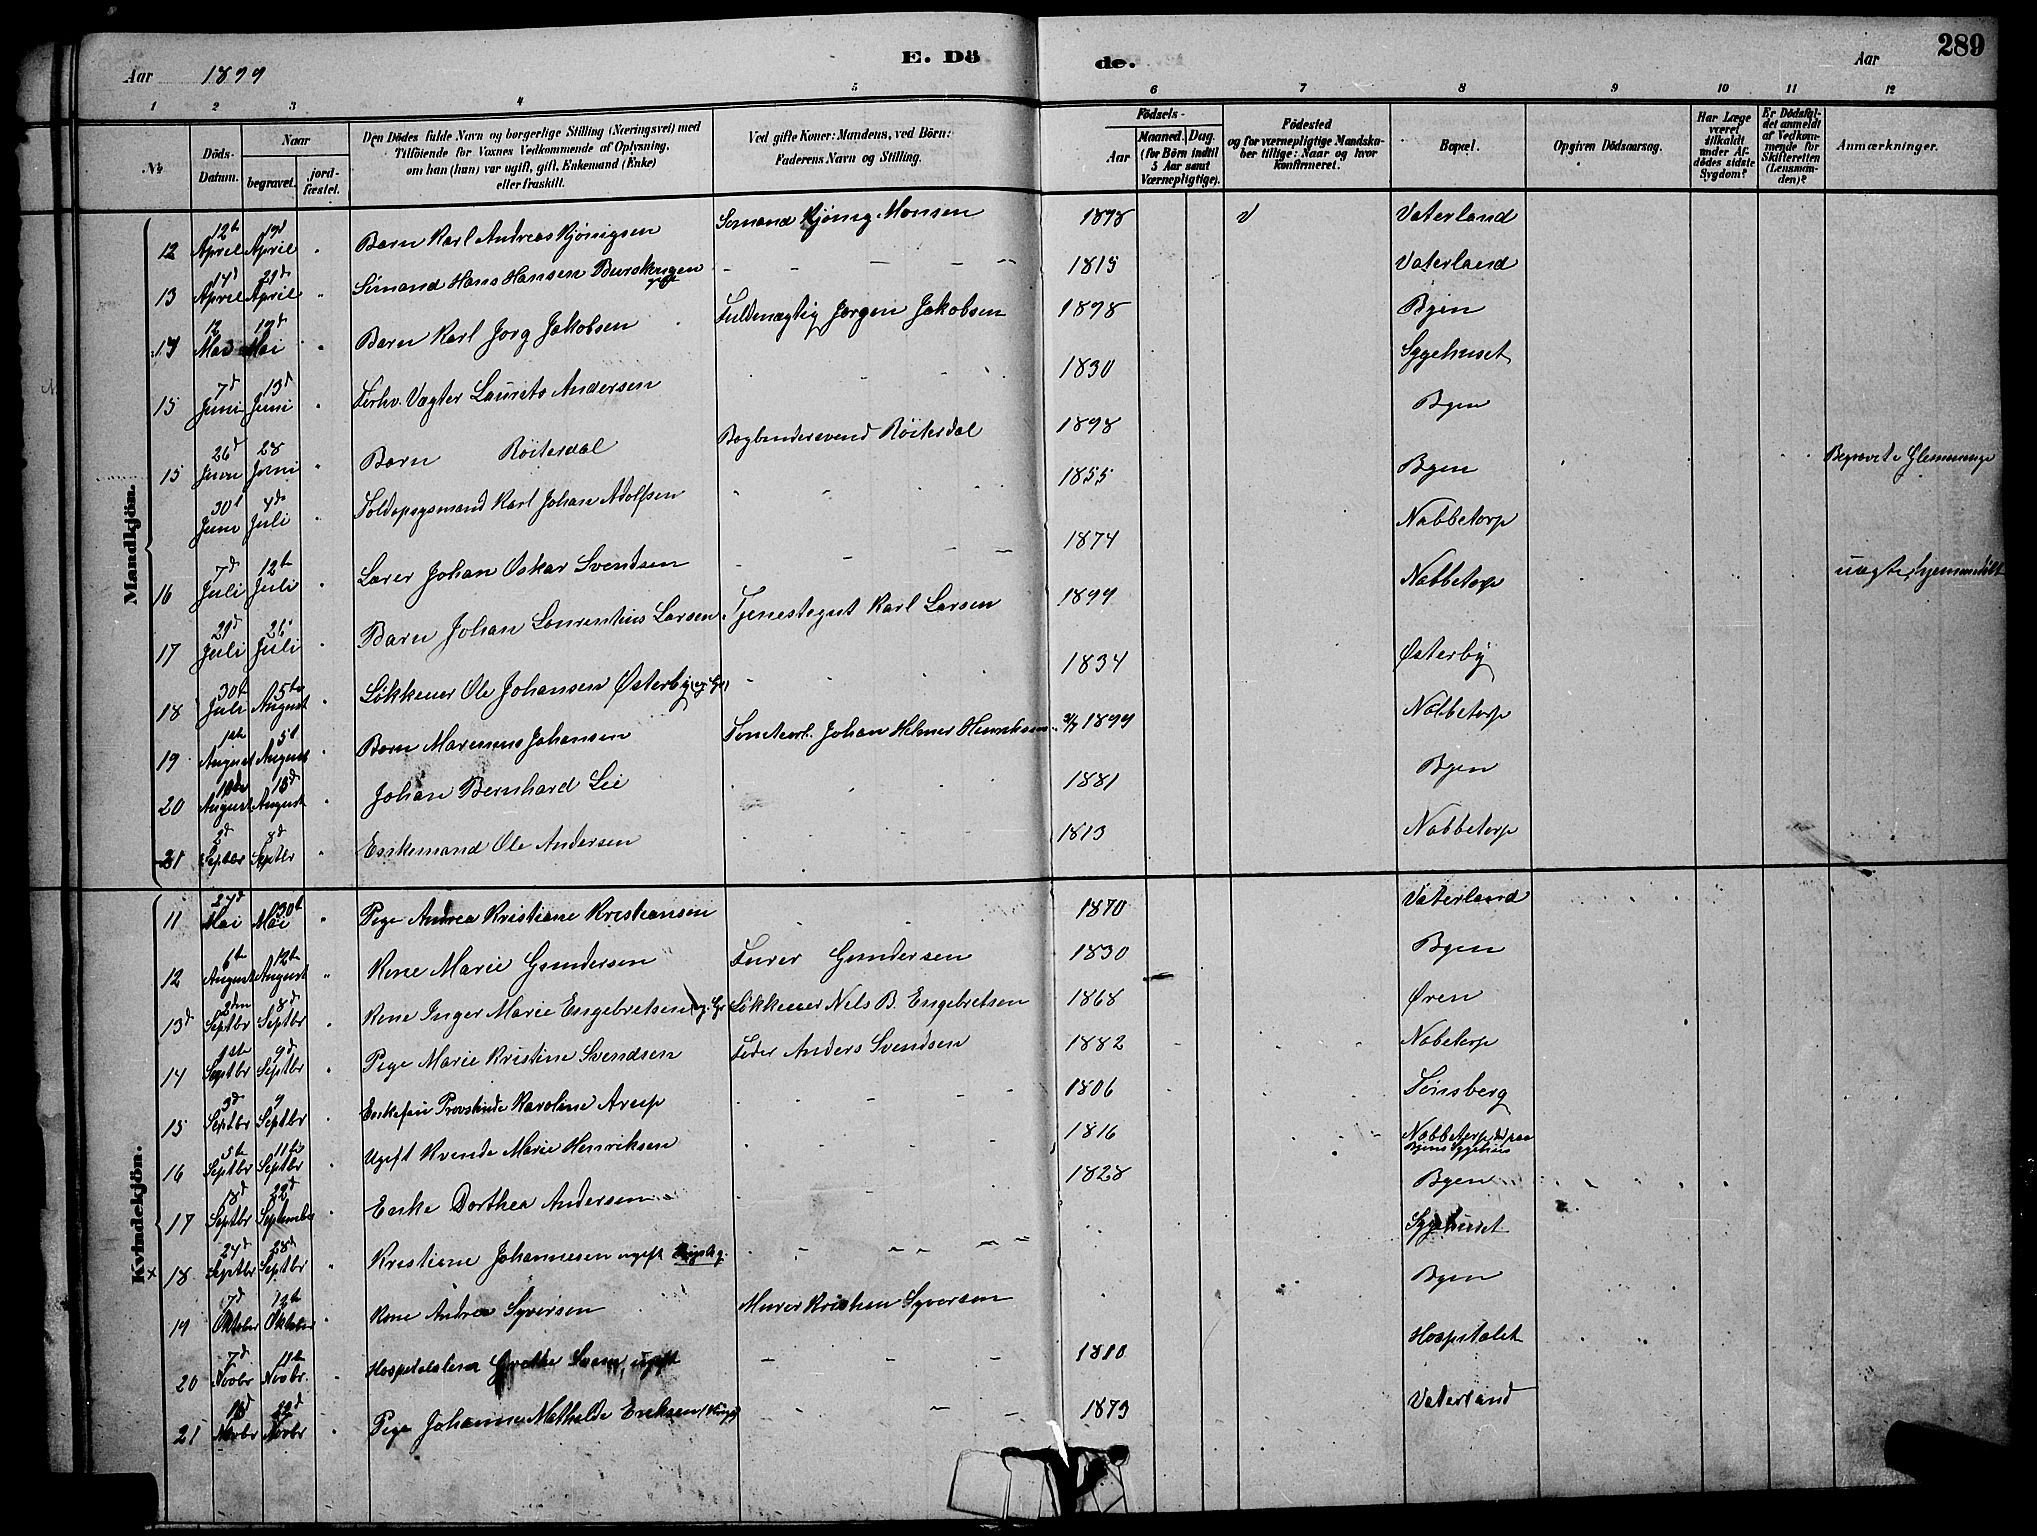 Aar 1899 E. Dö de. Aar 289
1 2 3 4 5 6 7 8 9 10 11 12
No. Döds-Datum. Naar begravet. jordfæstet. Den Dödes fulde Navn og borgerlige Stilling (Næringsvei) med Tilföiende for Voxnes Vedkommende af Oplysning, om han (hun) var ugift, gift, Enkemand (Enke) eller fraskilt. Ved gifte Koner: Mandens, ved Børn: Faderens Navn og Stilling. Födsels- Aar Maaned. Dag. (for Börn indtil 5 Aar samt Værnepligtige). Födested og for værnepligtige Mandskaber tillige: Naar og hvor konfirmeret. Bopæl. Opgiven Dödsaarsag. Har Læge været tilkaldt under Afdödes sidste Sygdom? Er Dödsfaldet anmeldt af Vedkommende for Skifteretten (Lensmanden)? Anmærkninger.
Mandkjön.
12 12te April 19d April " Barn Karl Andreas Kjönigsen Sömand Kjönig Monsen 1898 Vaterland
13 14d April 21d April " Sömand Hans Hansen 1815 Vaterland
14 12 Mai 19d Mai " Barn Karl Jorg Jakobsen Fuldmægtig Jørgen Jakobsen 1898 Byen
15 7d Juni 13d Juni " Forhv. Vægter Laurits Andersen 1830 Sygehuset
15 26d Juni 28 Juni " Barn Röiterdal Bogbindersvend Röiterdal 1898 Byen
30t Juni 4de Juli " Toldopsysmand Karl Johan Adolfsen 1855 Byen
16 7d Juli 12te Juli " Lærer Johan Oskar Svendsen 1874 Nabbetorp
17 21d Juli 26 Juli " Barn Johan Laurentius Larsen Tjenestegut Karl Larsen 1899 Nabbetorp
18 30te Juli 5te August " Løkkeeier Ole Johansen Østerby 1834 Østerby
19 1ste August 5t August " Barn Marenius Johansen Johan Helmer Henriksen 1899 Nabbetorp
20 August 18d August " Johan Bernhard Lie 1881 Byen
21 2d Septbr 8d Septbr " Enkemand Ole Andersen 1813 Nabbetorp
Kvindekjön.
11 27d Mai 30t Mai " Pige Andrea Kristiane Kristiansen 1870 Vaterland
12 6te August 12te August " Kone Marie Gundersen Gundersen 1830 Byen
13d 2den Septbr 8d Septbr " Kone Inger Marie Engebretsen Løkkeeier Nels B. Engebretsen 1868 Øren
14 1ste Septbr 9d Septbr " Pige Marie Kristine Svendsen Anders Svendsen 1882 Nabetorp
15 3d Septbr 9 Septbr " Enkefru Provstinde Karoline Arup 1806 Tönsberg
16 5te Septbr 11te Septbr " Ugift Kvinde Marie Henriksen 1816 Nabbetorp, död paa Byens Sygehus
17 18d Septbr 22d September " Enke Dorthea Andersen 1828 Byen
x 18 24d Septbr 28d Septbr " Kristiane Johannesen ugift Sygehuset
19 7d Oktober 12te Oktober " Kone Andrea Syversen Murer Kristian Syversen Byen
20 7d Novbr 11te Novbr. " Hospitalslem Grethe ugift 1810 Hospitalet
21 Novbr 22d Novbr " Pige Johanne Mathilde Eriksen 1873 Vaterland